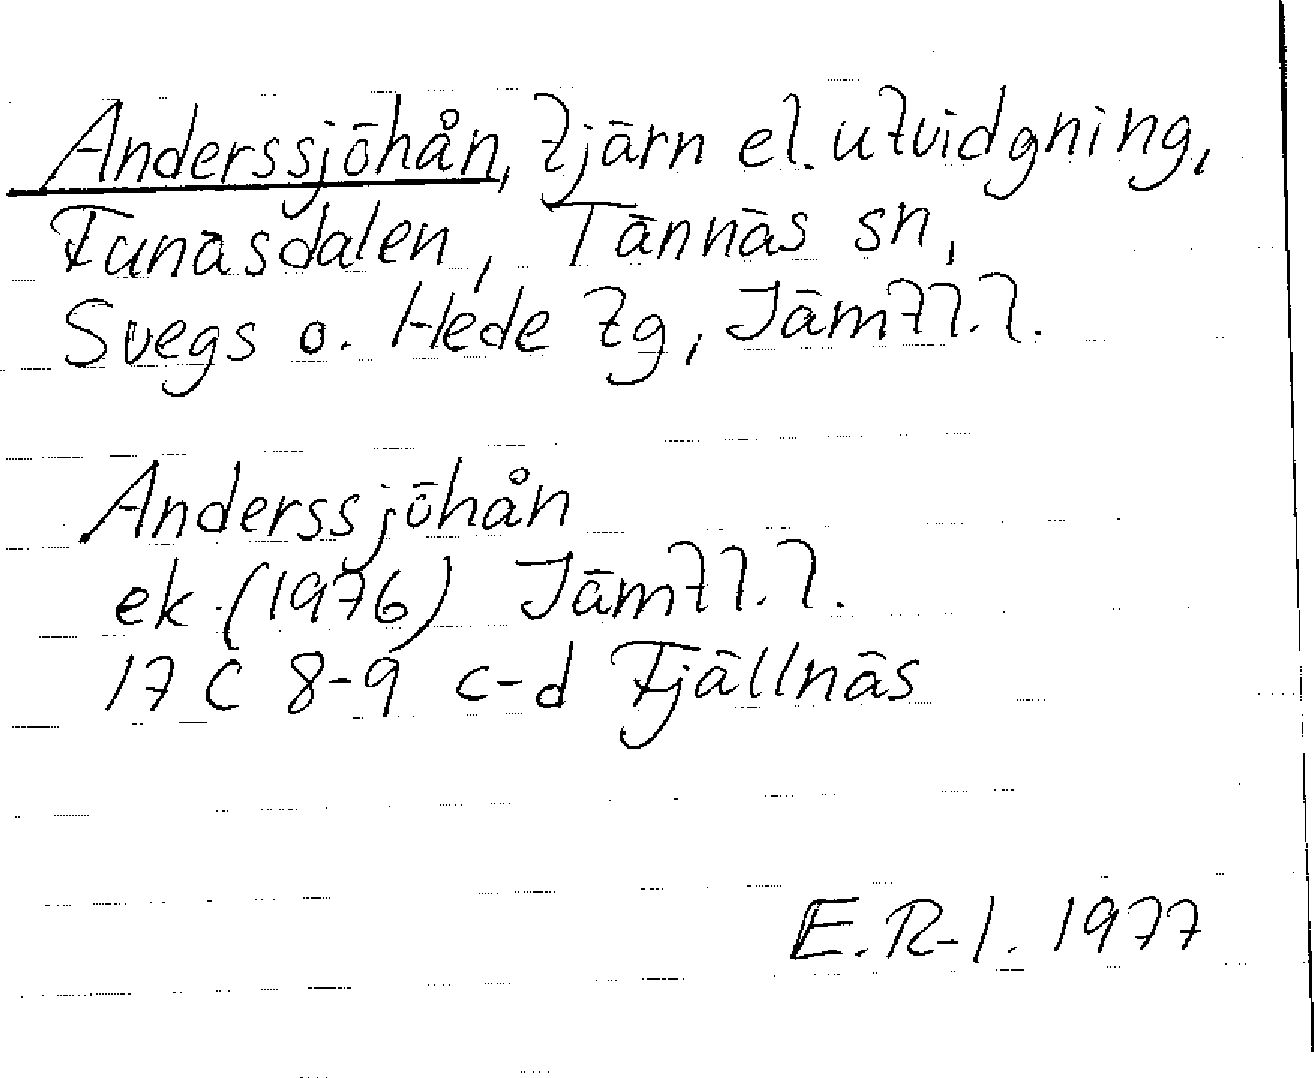 Anderssjöhån, tjärn el. utvidgning,
Funäsdalen, Tännäs sn,
Svegs o. Hede tg, Jämtl.l.
Anderssjöhån
ek (1976) Jämtl.l.
17 C 8-9 c-d Fjällnäs
E.R-l. 1977